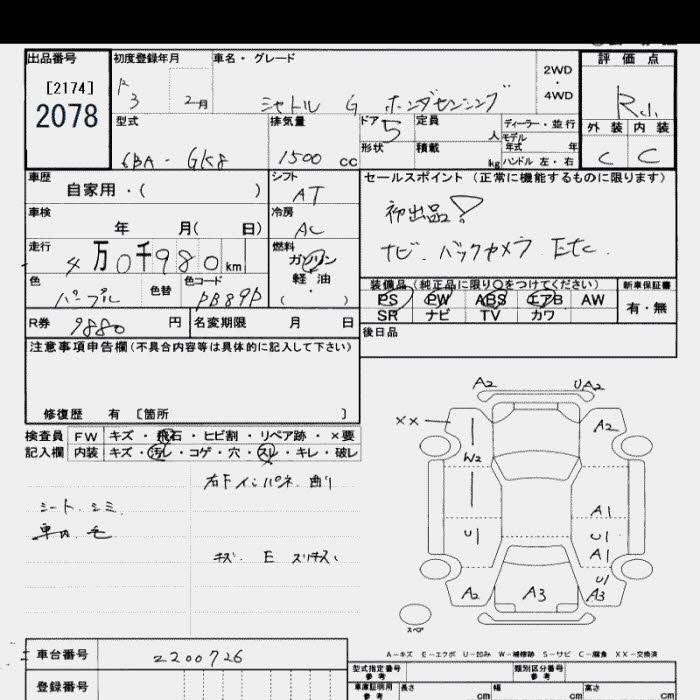 出品番号 初度登録年月 車名・グレード 2WD ・ 4WD 評価点
[2174]
2078
R 3 2月 シャトル G ホンダセンシング R.1.
型式 排気量 ドア 定員 人 ディーラー・並行 外装 内装
6BA - GK8 1500 cc 5 形状 積載 kg モデル年式 年 ハンドル 左・右 C C
車歴 自家用・( ) シフト AT セールスポイント (正常に機能するものに限ります)
初出品!
車検 年 月( 日) 冷房 AC
ナビ. バックカメラ. Etc.
走行 4万0千980km 燃料 ガソリン 軽油 ・( )
色 パープル 色替 色コード PB89P
装備品 (純正品に限り○をつけてください) 新車保証書
PS PW ABS エアB AW 有・無
SR ナビ TV カワ
R券 9880 円 名変期限 月 日 後日品
注意事項申告欄(不具合内容等は具体的に記入して下さい)
修復歴 有 [箇所 ]
検査員 FW キズ・飛石・ヒビ割・リペア跡・×要
記入欄 内装 キズ・汚レ・コゲ・穴・スレ・キレ・破レ
右F インパネ. 曲り
シート シミ.
車内 毛
キズ. E スリキズ.
A2 UA2
XX A2
W2
A1
U1 U1
A1
U1
A2 A3 A3
スペア
A-キズ E-エクボ U-凹み W-補修跡 S-サビ C-腐食 XX-交換済
車台番号 2200726
型式指定番号 参考 類別区分番号 参考
登録番号
車庫証明用 参考 長さ cm 幅 cm 高さ cm